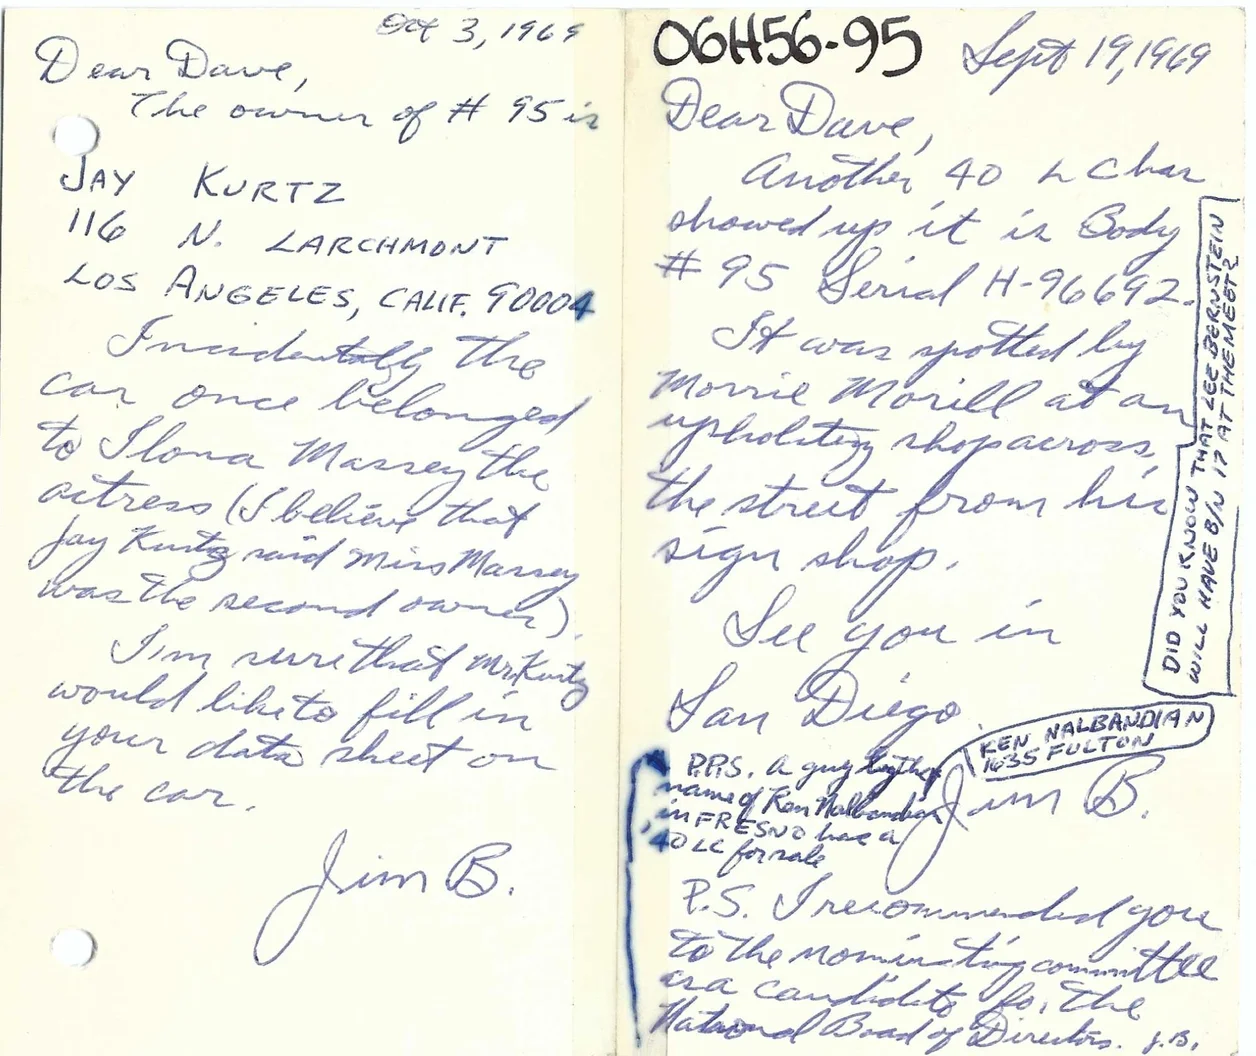 Oct 3, 1969
Dear Dave,
The owner of # 95 is
JAY KURTZ
116 N. LARCHMONT
LOS ANGELES, CALIF. 90004
Incidentally the
car once belonged
to Ilona Massey the
actress (I believe that
Jay Kurtz said Miss Massey
was the second owner).
I'm sure that Mr. Kurtz
would like to fill in
your data sheet on
the car.
Jim B.
06H56-95
Sept 19, 1969
Dear Dave,
Another 40 L Char
showed up it is Body
# 95 Serial H-96692.
It was spotted by
Morrie Morill at an
upholstry shop across,
the street from his
sign shop.
See you in
San Diego.
Jim B.
KEN NALBANDIAN
1635 FULTON
P.P.S. A guy by the
name of Ken Nalbandian
in FRESNO has a
40 LC for sale
P.S. I recommended you
to the nominating committee
as a candidate for the
National Board of Directors. J.B.
DID YOU KNOW THAT LEE BERNSTEIN
WILL HAVE B/N 17 AT THE MEET?